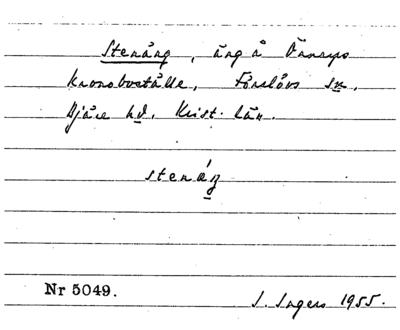 Stenäng, äng å Ö
kronoboställe, Förslövs sn,
Bjäre hd. Krist. län.
stenáŋ
Nr 5049.
I. Ingers 1955.